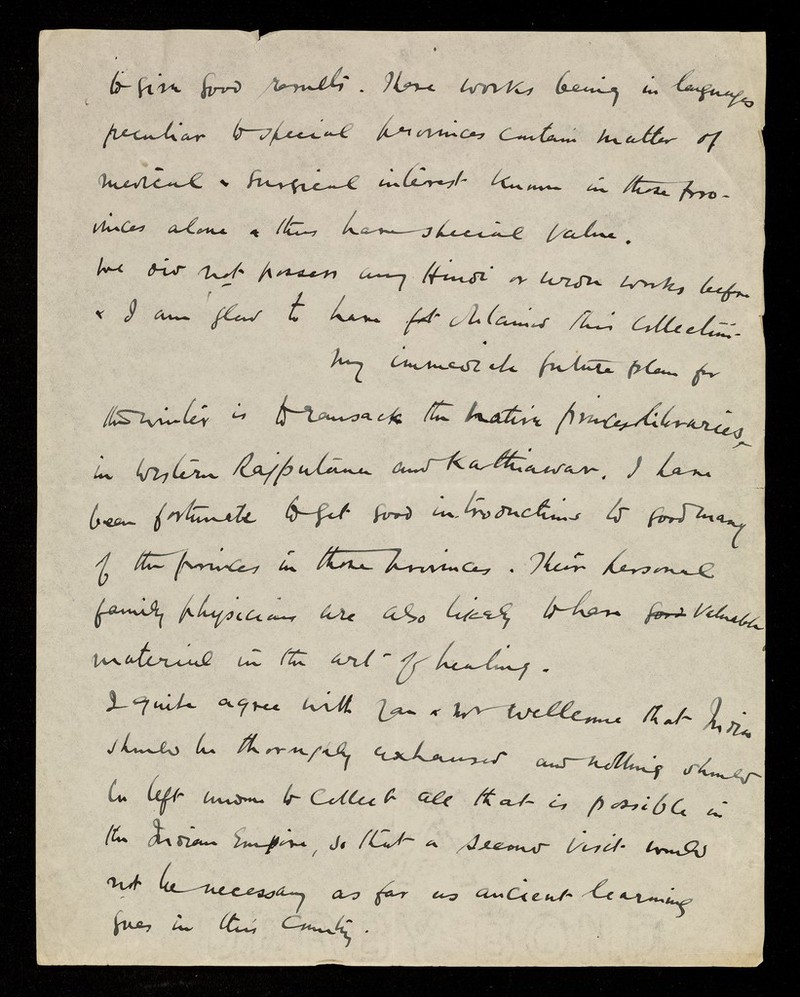 to give good results. These works being in languages
peculiar to special provinces contain matter of
medical & surgical interest known in those pro-
vinces alone & thus have special value.
We did not possess any Hindi or urdu works before
& I am glad to have got obtained this collection.
My immediate future plan for
the winter is to ransack the native princes libraries,
in Western Rajputana and Kathiawar. I have
been fortunate to get good introductions to good many
of the princes in those provinces. Their personal
family physicians are also likely to have good valuable
material in the art of healing.
I quite agree with you & Mr Wellcome that India
should be thoroughly exhausted and nothing should
be left undone to collect all that is possible in
the Indian Empire, so that a second visit would
not be necessary as far as ancient learning
goes in this country.